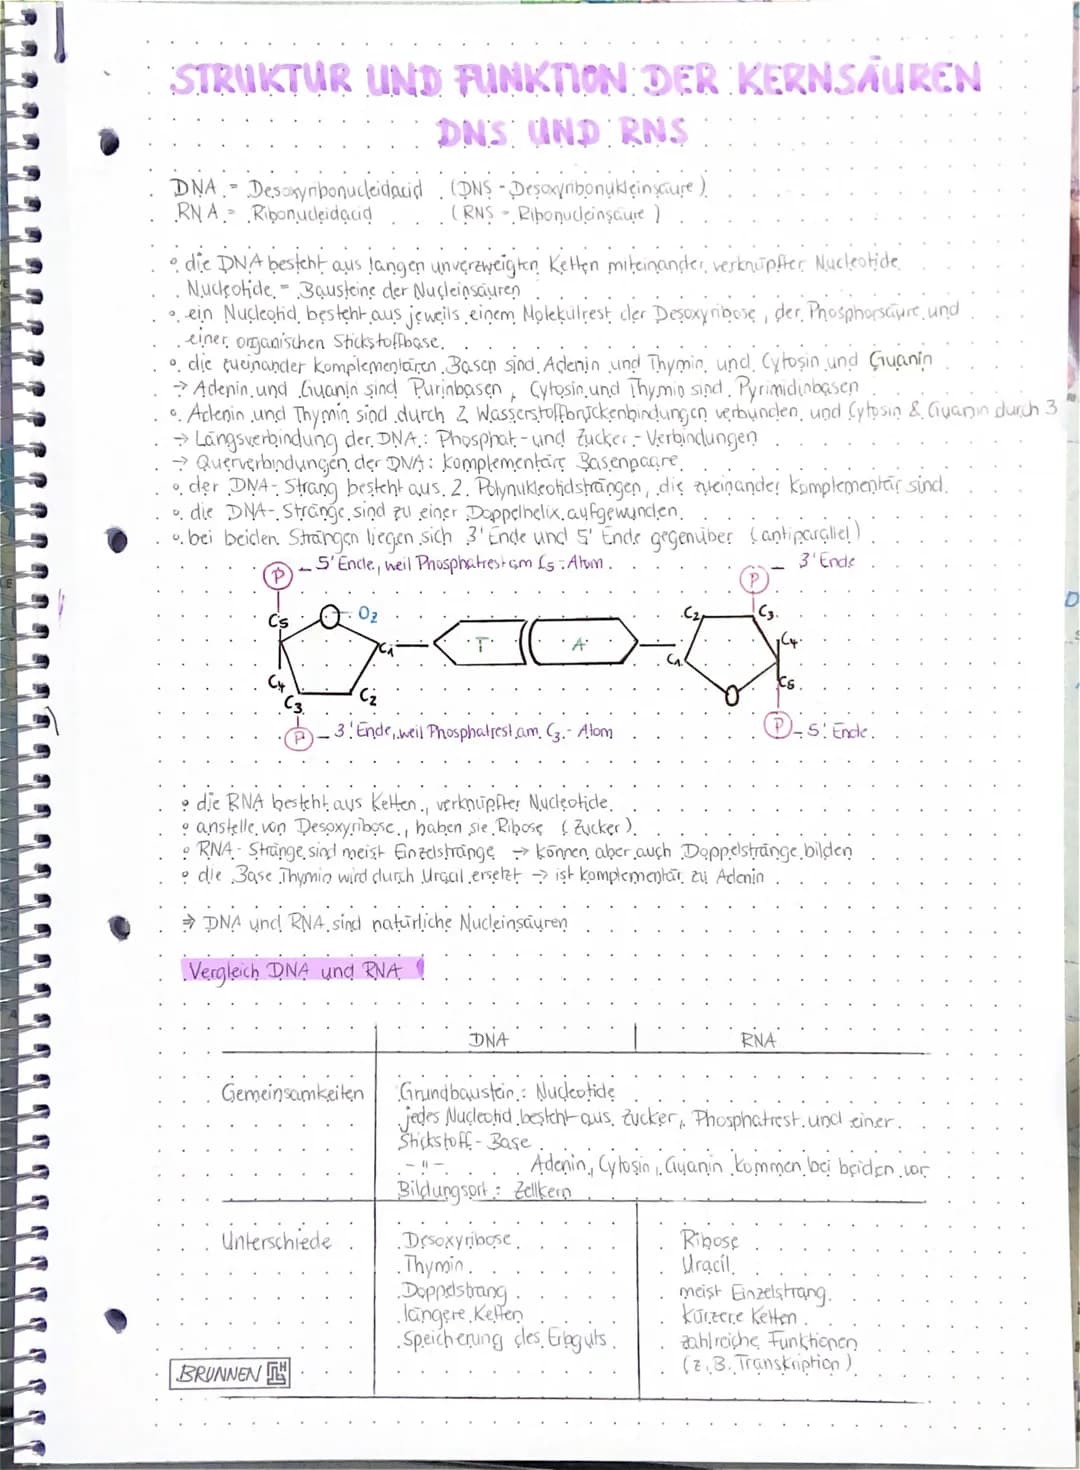 STRUKTUR UND FUNKTION DER KERNSÄUREN
DNS UND RNS
DNA = Desoxyribonucleidacid (DNS - Desoxyribonukleinsäure)
RNA = Ribonucleidacid (RNS - Ribonucleinsäure)
° die DNA besteht aus langen unverzweigten Ketten miteinander verknüpfter Nucleotide
Nucleotide = Bausteine der Nucleinsäuren
° ein Nucleotid besteht aus jeweils einem Molekülrest der Desoxyribose, der Phosphorsäure und
einer organischen Stickstoffbase.
° die zueinander komplementären Basen sind Adenin und Thymin, und Cytosin und Guanin
→ Adenin und Guanin sind Purinbasen, Cytosin und Thymin sind Pyrimidinbasen
° Adenin und Thymin sind durch 2 Wasserstoffbrückenbindungen verbunden, und Cytosin & Guanin durch 3
→ Längsverbindung der DNA: Phosphat- und Zucker-Verbindungen
→ Querverbindungen der DNA: komplementäre Basenpaare
° der DNA-Strang besteht aus 2 Polynukleotidsträngen, die zueinander komplementär sind.
° die DNA-Stränge sind zu einer Doppelhelix aufgewunden.
° bei beiden Strängen liegen sich 3' Ende und 5' Ende gegenüber (antiparallel)
P - 5' Ende, weil Phosphatrest am C5-Atom
P - 3' Ende
C5 O O2 C1 T A C2 C3 C4
C4 C3 C2 C1 O C5
P - 3' Ende, weil Phosphatrest am C3-Atom
P - 5' Ende
° die RNA besteht aus Ketten, verknüpfter Nucleotide
° anstelle von Desoxyribose, haben sie Ribose (Zucker)
° RNA-Stränge sind meist Einzelstränge → können aber auch Doppelstränge bilden
° die Base Thymin wird durch Uracil ersetzt → ist komplementär zu Adenin
⇒ DNA und RNA sind natürliche Nucleinsäuren
Vergleich DNA und RNA
DNA RNA
Gemeinsamkeiten Grundbaustein: Nucleotide
jedes Nucleotid besteht aus Zucker, Phosphatrest und einer
Stickstoff-Base
-"- Adenin, Cytosin, Guanin kommen bei beiden vor
Bildungsort: Zellkern
Unterschiede Desoxyribose Ribose
Thymin Uracil
Doppelstrang meist Einzelstrang
längere Ketten kürzere Ketten
Speicherung des Erbguts zahlreiche Funktionen
(z.B. Transkription)
BRUNNEN